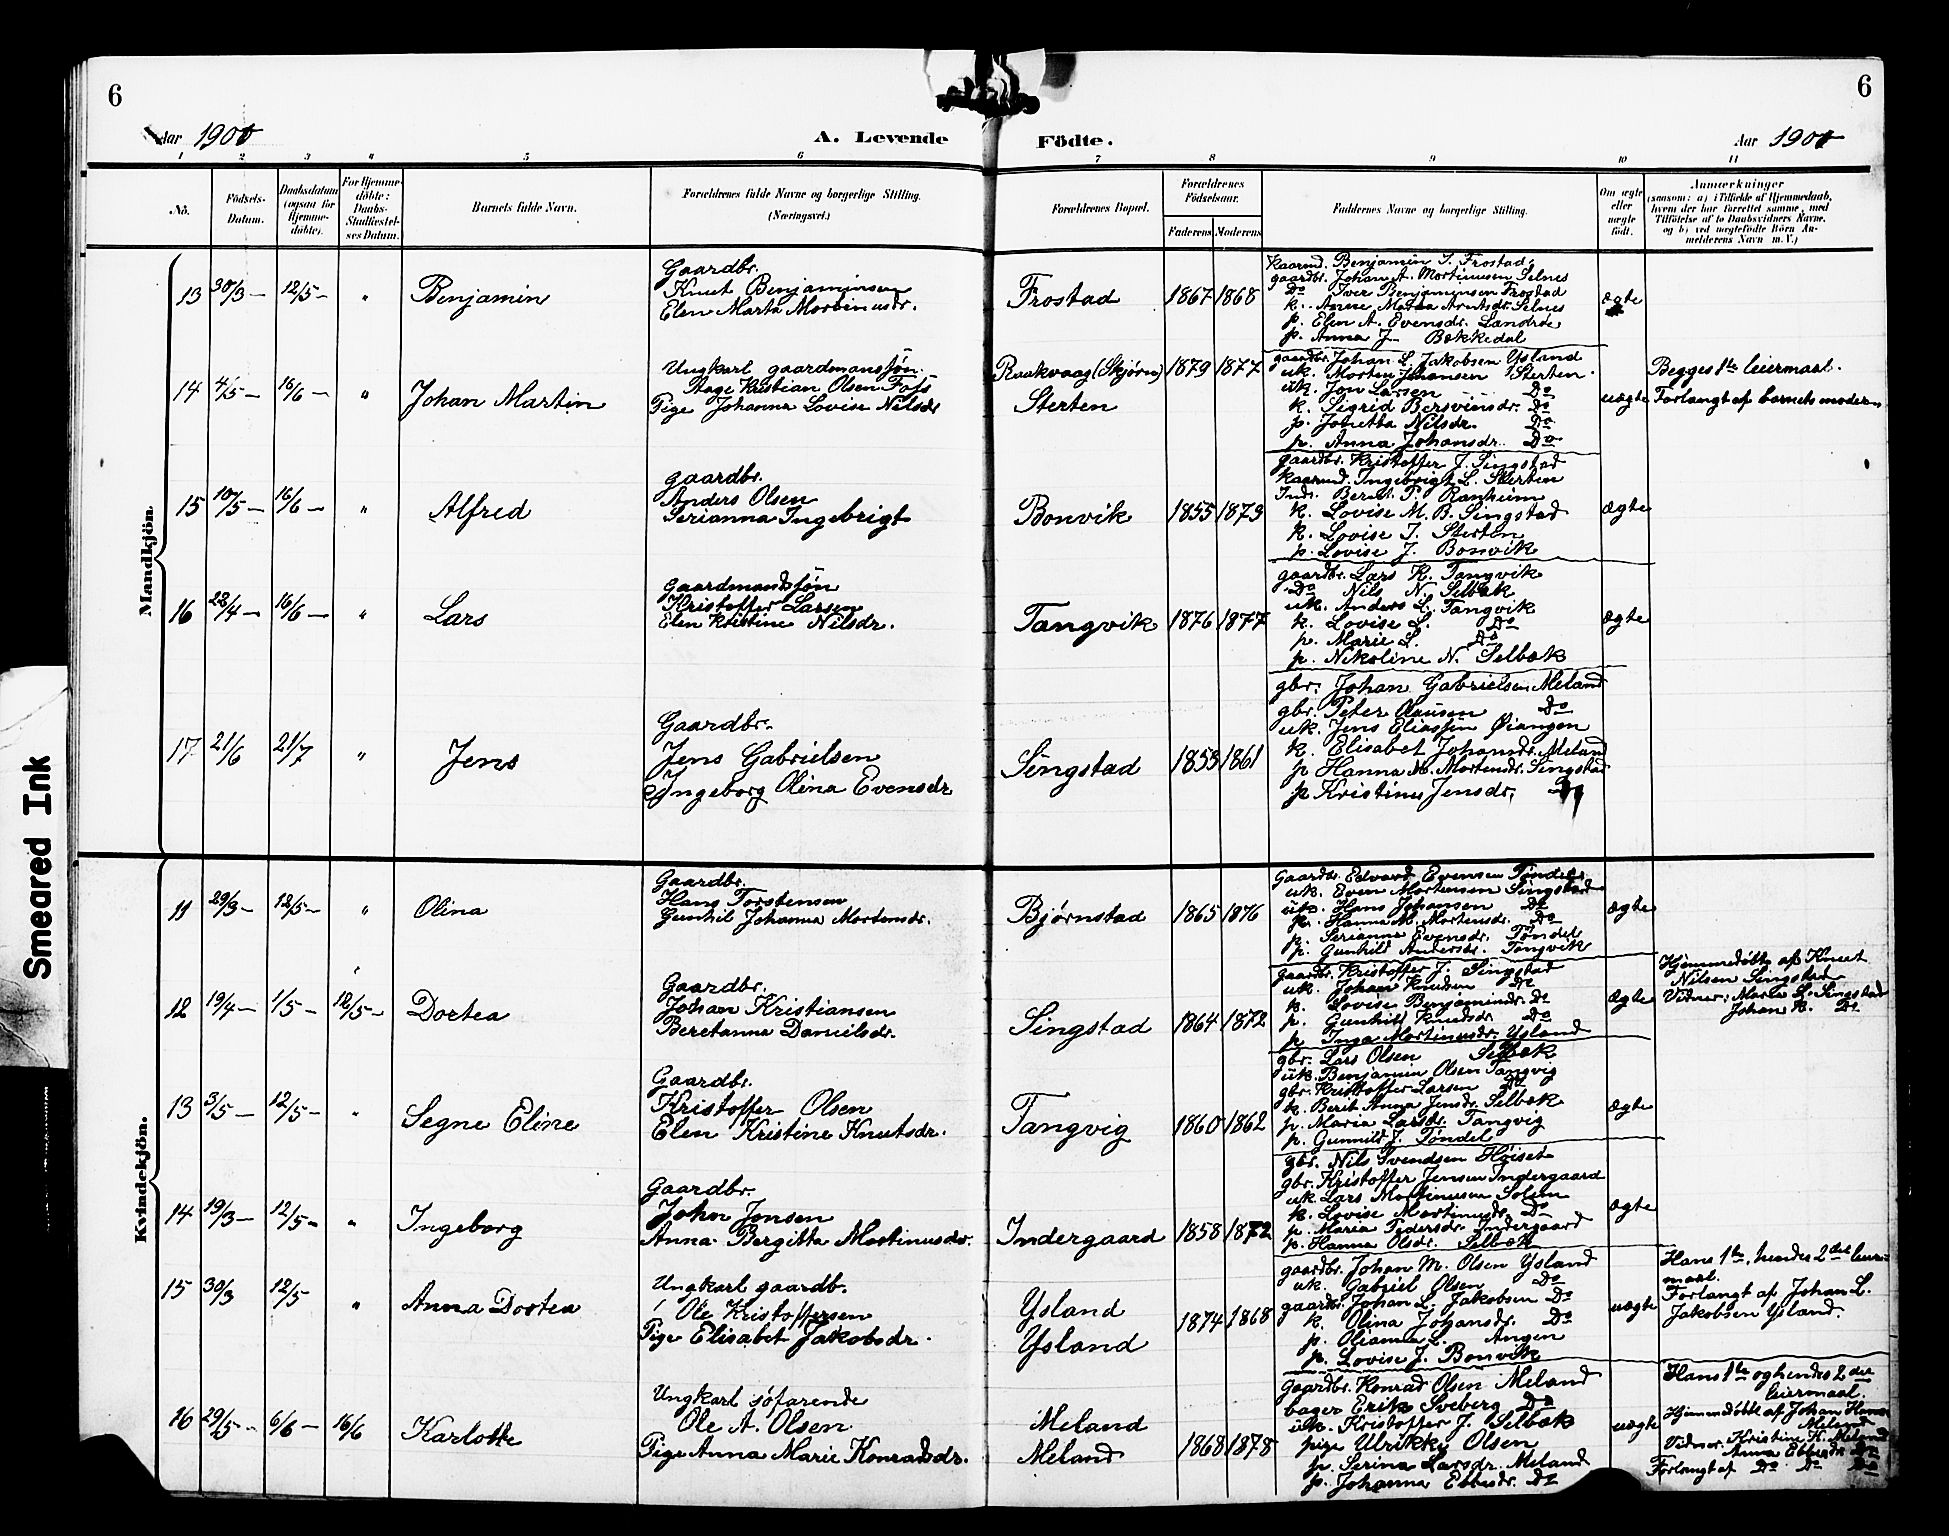 6
6
Aar 1901
A. Levende
Födte.
Aar 1901
1 2 3 4 5 6 7 8 9 10 11
Nö.
Födsels-
Datum.
Daabsdatum
(ogsaa for
Hjemme-
döbte).
For Hjemme-
döbte:
Daabs-
Stadfæstel-
ses Datum.
Barnets fulde Navn.
Forældrenes fulde Navne og borgerlige Stilling.
(Næringsvei.)
Forældrenes Bopæl.
Forældrenes
Födselsaar.
Faderens Moderens
Faddernes Navne og borgerlige Stilling.
Om ægte
eller
uægte
födt.
Anmærkninger
(saasom: a) i Tilfælde af Hjemmedaab,
hvem der har forrettet samme, med
Tilföielse af to Daabsvidners Navne,
og b) ved uægtefödte Börn An-
melderens Navn m. V.)
Mandkjön.
13 30/3 — 12/5 — " Benjamin
Gaardbr.
Knut Benjaminsen
Elen Marta Mortinusdr.
Frostad 1867 1868
Kaarmd. Benjamin I. Frostad,
gaardbr. Johan A. Mortinusen Selnes
Do Iver Benjaminsen Frostad
k. Anne Marta Arntsdr. Selnes
p. Elen A. Evensdr. Landrøe
p. Anna J. Bekkedal
ægte
14 4/5 — 16/6 — " Johan Martin
Ungkarl gaardmanssøn
Aage Kristian Olsen Fots
Pige Johanna Lovise Nilsdr
Raakvaag (Skjørn) 1879 1877
Sterten
gaardbr. Johan L. Jakobsen Ysland
uk. Morten Johansen Sterten
uk. Jon Larsen Do
k. Sigrid Bersvensdr. Do
p. Jonetta Nilsdr. Do
p. Anna Johansdr. Do
uægte
Begges 1te leiermaal.
Forlangt af barnets moder
15 10/5 — 16/6 — " Alfred
gaardbr.
Anders Olsen
Serianna Ingebrigt
Bonvik 1855 1873
gaardbr. Kristoffer J. Singstad
Kaarmd. Ingebrigt L. Sterten
Inds. Bernt P. Ranheim
k. Lovise M. B. Singstad
k. Lovise I. Sterten
p. Lovise J. Bonvik
ægte
16 28/4 — 16/6 — " Lars
gaardmandssøn
Kristoffer Larsen
Elen Kristine Nilsdr.
Tangvik 1876 1877
gaardbr. Lars K. Tangvik
Do Nils N. Selbæk
uk. Anders L. Tangvik
k. Lovise L. Do
p. Marie L. Do
p. Nikoline N. Selbæk
ægte
17 21/6 21/7 " Jens
Gaardbr.
Jens Gabrielsen
Ingeborg Olina Evensdr
Singstad 1853 1861
gbr. Johan Gabrielsen Meland
gbr. Peter Olausen Do
uk. Jens Eliassen Øiangen
k. Elisabet Johansdr. Meland
p Hanna M. Mortensdr. Singstad
p Kristine Jensdr, Do
Kvindekjön.
11 29/3 — 12/5 — " Olina
Gaardbr.
Hans Torstensen
Gunhil Johanna Mortensdr.
Bjørnstad 1865 1876
Gaardbr. Edvard Evensen Tøndel
uk. Even Mortensen Singstad
uk. Hans Johansen Do
p. Hanna M. Mortensdr. Do
p. Serianna Evensdr. Tøndel
p. Gunhild Andersdr. Tangvik
ægte
12 19/4 — 1/5 — 12/5 — Dortea
Gaardbr.
Johan Kristiansen
Beretanna Danielsdr.
Singstad 1864 1872
gaardbr. Kristoffer J. Singstad
uk. Johan Knudsen Do
k. Lovise Benjaminsdr. Do
p. Gunhild Knudsdr Do
p. Inga Mortinusdr. Ysland
ægte
Hjemmedøbt af Knut
Nilsen Singstad
Vidner: Maria L. Singstad
Johan K. Do
13 3/5 — 12/5 — " Segne Eline
Gaardbr.
Kristoffer Olsen
Elen Kristine Knutsdr.
Tangvig 1860 1862
gbr. Lars Olsen Selbæk
uk. Benjamin Olsen Tangvig
gbr. Kristoffer Larsen Do
k. Berit Anna Jensdr. Selbæk
p. Maria Larsdr. Tangvig
p. Gunnild J. Tøndel
ægte
14 19/3 — 12/5 — " Ingeborg
Gaardbr.
John Jonsen
Anna Bergitta Mortinusdr.
Indergaard 1858 1872
gbr. Nils Svendsen Høiset
gbr. Kristoffer Jensen Indergaard
uk. Lars Mortinusen Solem
k. Lovise Mortinusdr. Do
p. Maria Pedersdr. Indergaard
p. Hanna Olsdr. Selbæk
ægte
15 30/3 12/5 " Anna Dortea
Ungkarl gaardb.
Ole Kristoffersen
Pige Elisabet Jakobsdr.
Ysland
Ysland 1874 1868
gaardbr. Johan M. Olsen Ysland
uk. Gabriel Olsen Do
gaardbr. Johan L. Jakobsen Do
k. Olina Johansdr. Do
p. Olianna L. Angen
p. Lovise J. Bonvik
uægte
Hans 1te, hendes 2det leier-
maal.
Forlangt af Johan L.
Jakobsen Ysland.
16 29/5 — 6/6 — 16/6 Karlotte
Ungkarl søfarende
Ole A. Olsen
Pige Anna Marie Konradsdr.
Meland
Meland 1868 1878
Gaardbr. Konrad Olsen Meland
bager Erik Sveberg Do
uk. Kristoffer J. Selbæk
pige Ulrikke Olsen
p. Serina Larsdr. Meland
p. Johanna Ebbesdr. Do
uægte
Hans 1te og hendes 2det
leiermaal.
Hjemmedøbt af Johan Hans
Meland
Vidner. Kristine K. Meland
Anna Ebbesdr. Do
Forlangt af Do Do Do
Smeared Ink